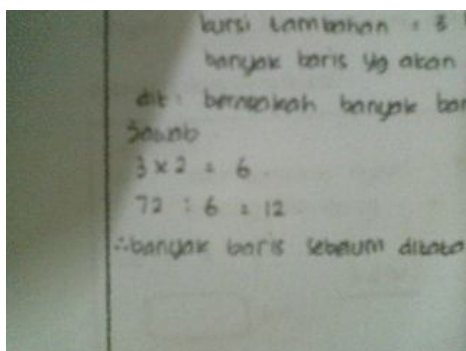 kursi tambahan = 3
banyak baris yg akan
dit : berapakah banyak bar
Jawab
3 x 2 = 6
72 : 6 = 12
∴ banyak baris sebelum ditata